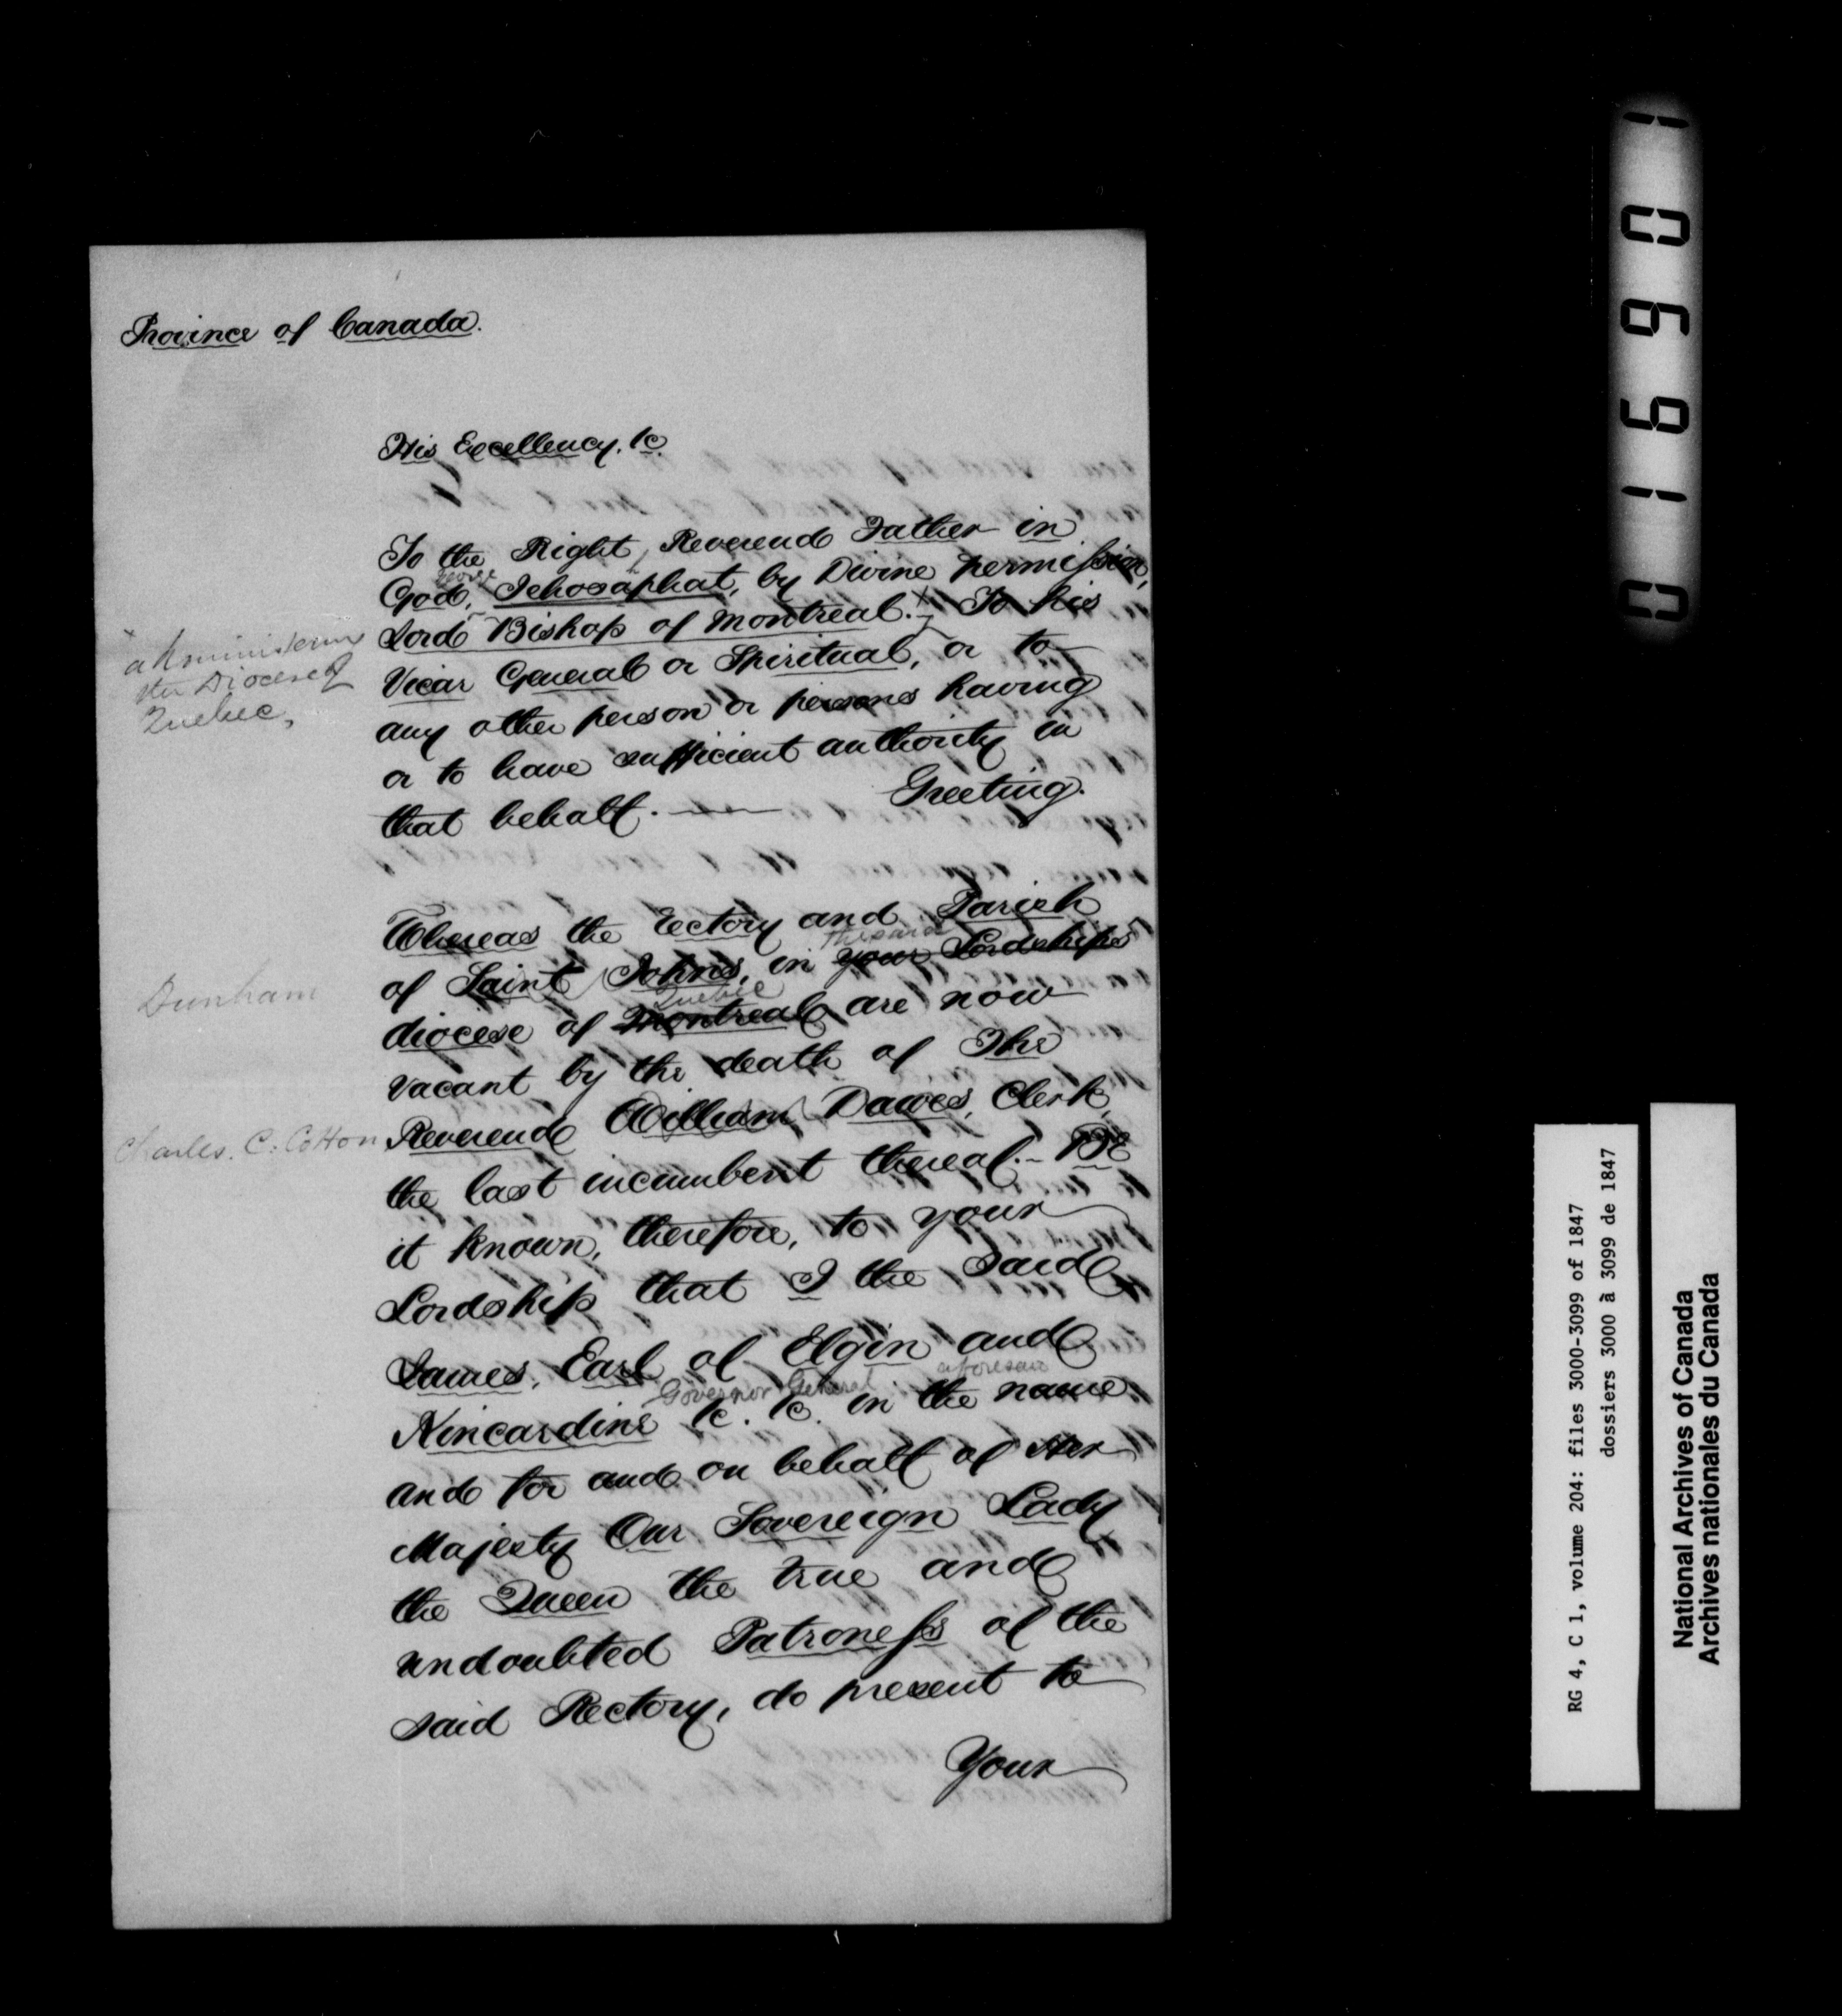 Province of Canada.
His Excellency. &c
To the Right Reverend Father in
George
God, Jehosaphat, by Divine permission,
Lord Bishop of Montreal. To his
administering
the Diocese of
Quebec,
Vicar General or Spiritual, or to
any other person or persons having
or to have sufficient authority in
that behalf. Greeting.
Whereas the Rectory and Parish
the said
of Saint Johns, in your Lordships
Dunham
Quebec
diocese of Montreal are now
vacant by the death of The
Reverend William Dawes, Clerk,
Charles. C. Cotton
the last incumbent thereof. BE
it known, therefore, to your
Lordship that I the said
James, Earl of Elgin and
Governor General aforesaid
Kincardine &c. &c. in the name
and for and on behalf of Her
Majesty Our Sovereign Lady
the Queen the true and
undoubted Patroness of the
said Rectory, do present to
Your
016901
RG 4, C 1, volume 204: files 3000-3099 of 1847
dossiers 3000 à 3099 de 1847
National Archives of Canada
Archives nationales du Canada